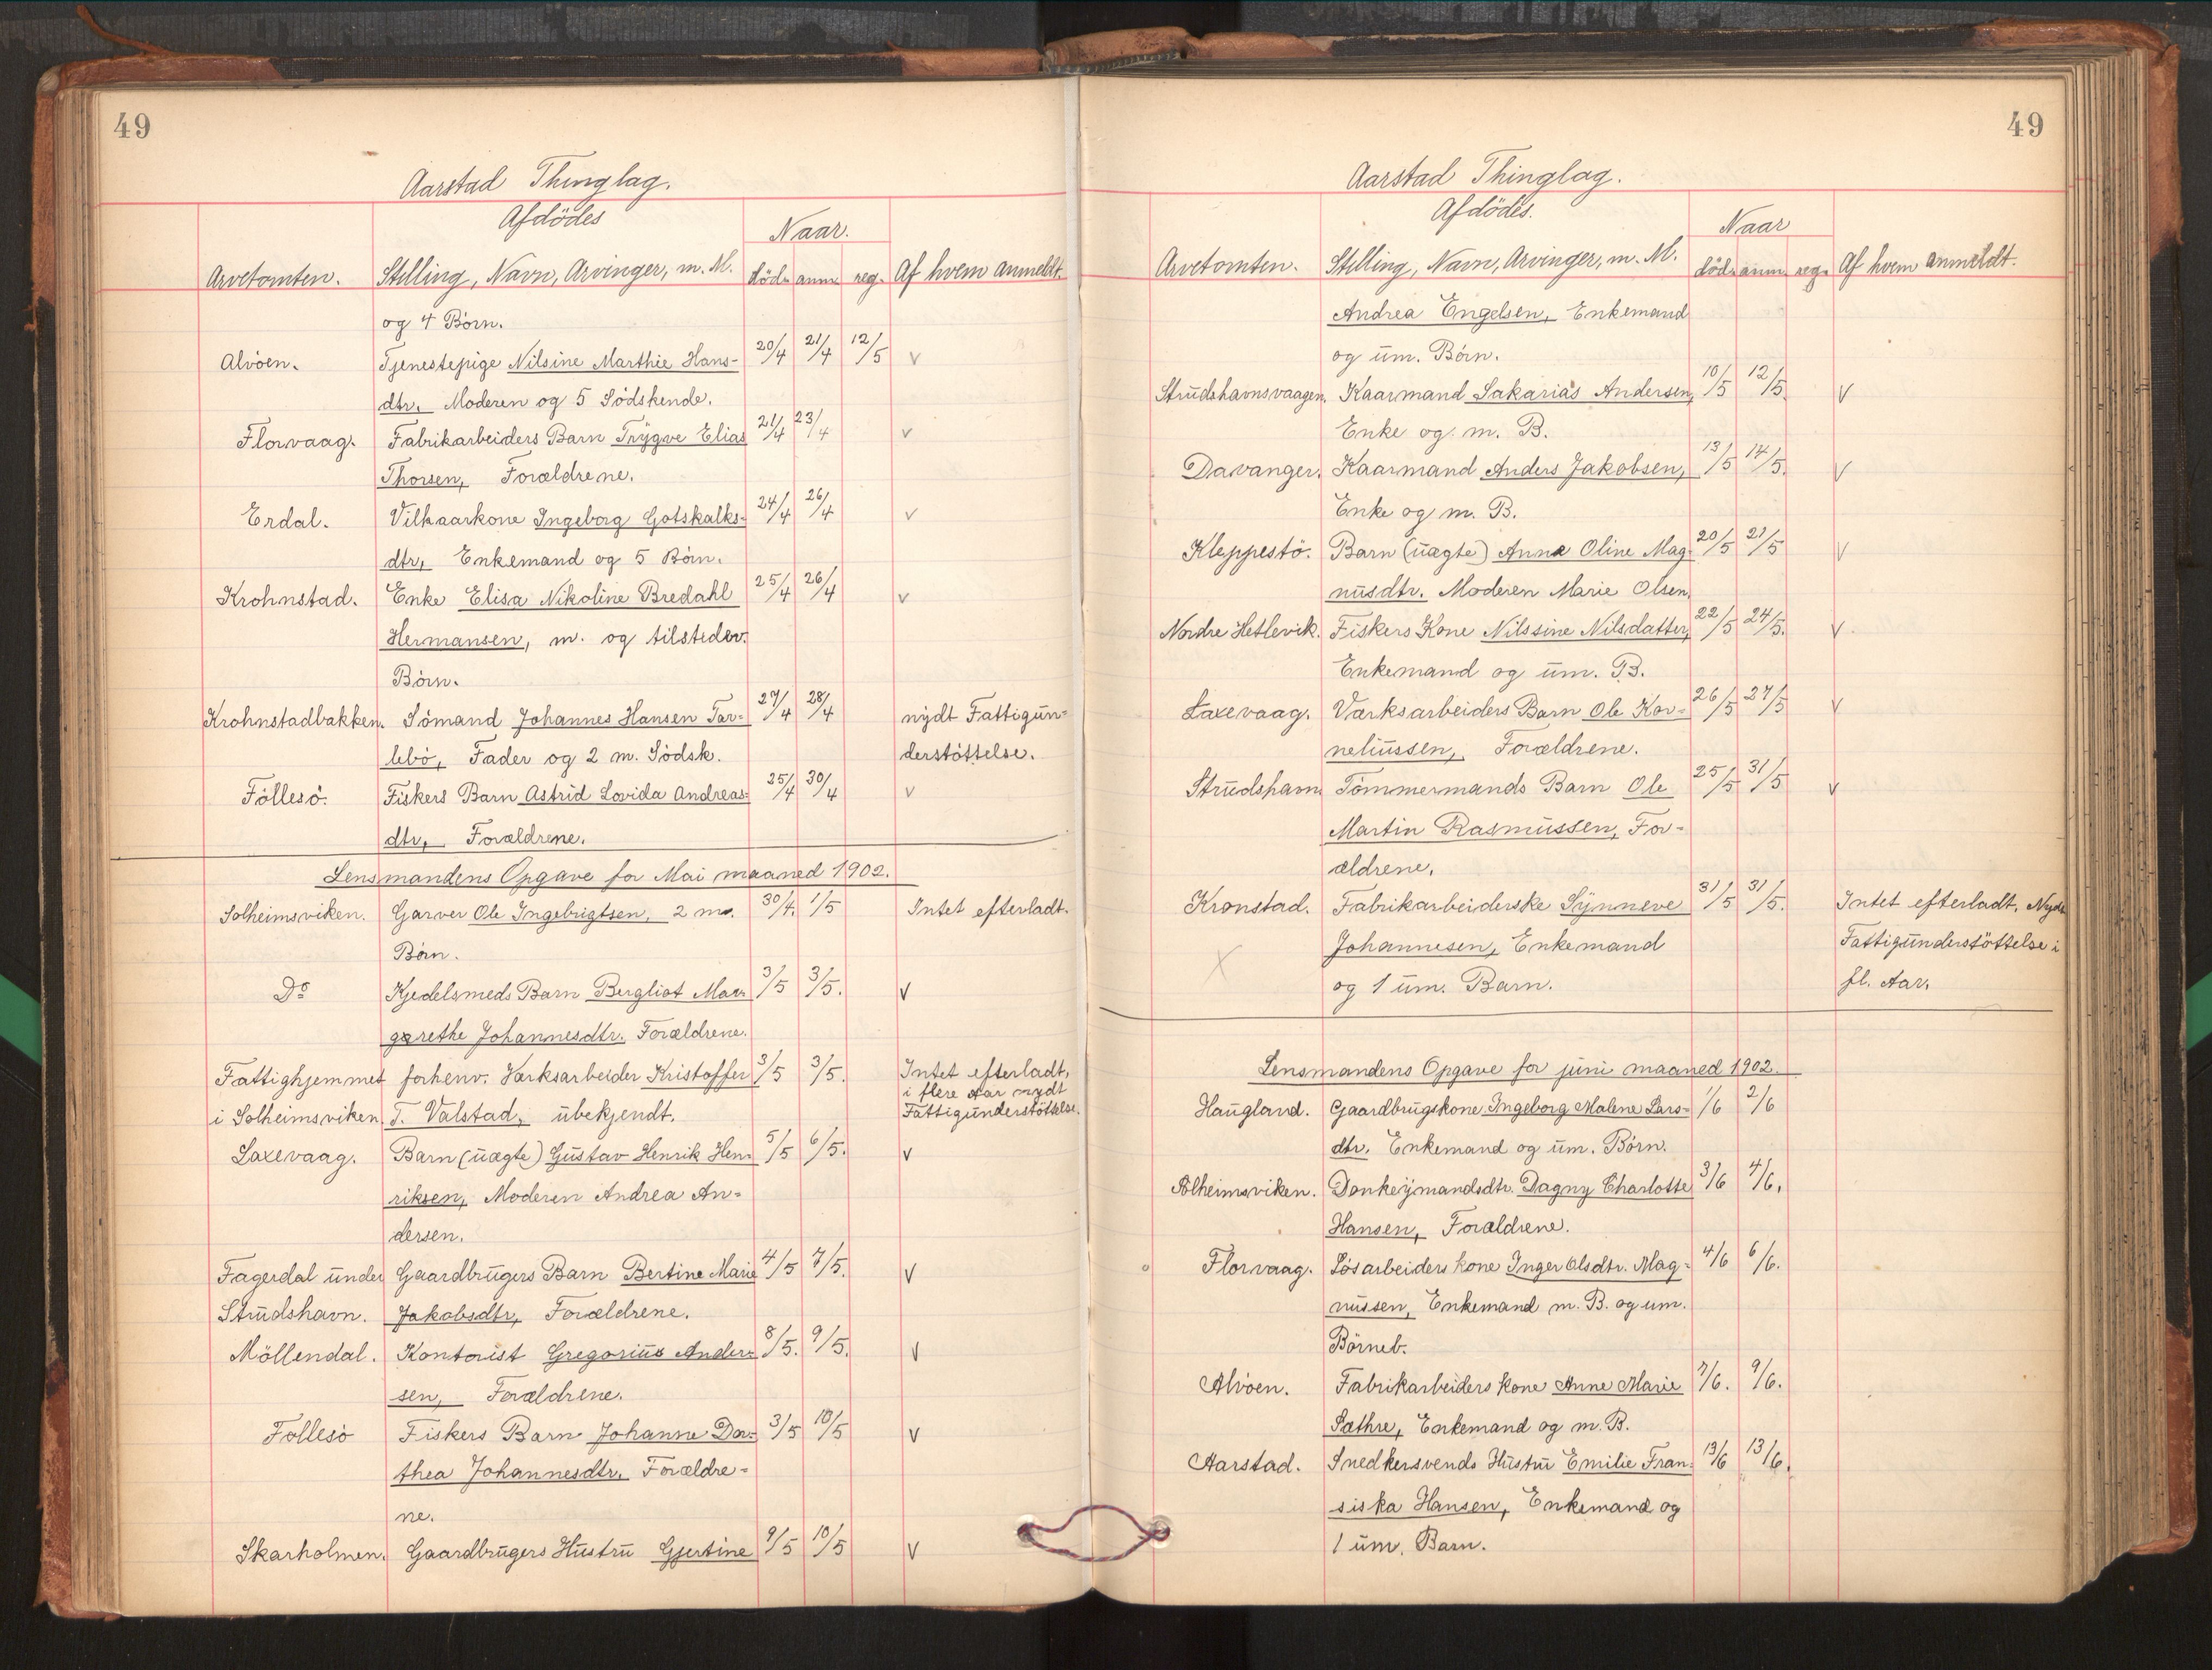 49
Aarstad Thinglag.
Afdödes
Naar.
Arvetomten. Stilling, Navn, Arvinger, m. M. död. anm. reg. Af hvem anmeldt.
og 4 Börn.
Alvöen. Tjenestepige Nilsine Marthie Hans- 20/4 21/4 12/5 v
dtr, Moderen og 5 Södskende.
Florvaag. Fabrikarbeiders Barn Trygve Elias 21/4 23/4 v
Thorsen, Forældrene.
Erdal. Vilkaarkone Ingeborg Gotskalks- 24/4 26/4 v
dtr, Enkemand og 5 Börn.
Krohnstad. Enke Elisa Nikoline Bredahl 25/4 26/4 v
Hermansen, m. og tilstedev.
Börn.
Krohnstadbakken. Sömand Johannes Hansen Tor- 27/4 28/4 nydt Fattigun-
lebö, Fader og 2 m. Södsk. derstöttelse.
Föllesö. Fiskers Barn Astrid Lovida Andreas- 25/4 30/4 v
dtr, Forældrene.
Lensmandens Opgave for Mai maaned 1902.
Solheimsviken. Garver Ole Ingebrigtsen, 2 m. 30/4. 1/5 Intet efterladt.
Börn.
Do Kjedelsmeds Barn Bergliot Mar- 3/5 3/5. v
grethe Johannesdtr. Forældrene.
Fattighjemmet forhenv. Værksarbeider Kristoffer 3/5 3/5. Intet efterladt,
i flere Aar nydt
i Solheimsviken. T. Valstad, ubekjendt. Fattigunderstöttelse.
Laxevaag. Barn (uægte) Gustav Henrik Hen- 5/5 6/5. v
riksen, Moderen Andrea An-
dersen.
Fagerdal under Gaardbrugers Barn Bertine Marie 4/5 7/5. v
Strudshavn. Jakobsdtr, Forældrene.
Möllendal. Kontorist Gregorius Ander- 8/5. 9/5. v
sen, Forældrene.
Follesö Fiskers Barn Johanne Do- 3/5 10/5 v
thea Johannesdtr. Forældre-
ne.
Skarholmen. Gaardbrugers Hustru Gjertine 9/5 10/5 v
49
Aarstad Thinglag.
Afdödes.
Naar
Arvetomten. Stilling, Navn, Arvinger, m. M. död. anm. reg. Af hvem anmeldt.
Andrea Engelsen, Enkemand
og um. Börn.
Strudshavnsvaagen. Kaarmand Sakarias Andersen, 10/5 12/5. v
Enke og m. B.
Davanger. Kaarmand Anders Jakobsen, 13/5 14/5. v
Enke og m. B.
Kleppestö. Barn (uægte) Anna Oline Mag- 20/5 21/5 v
nusdtr. Moderen Marie Olsen.
Nordre Hetlevik. Fiskers Kone Nilssine Nilsdatter, 22/5 24/5. v
Enkemand og um. B.
Laxevaag. Værksarbeiders Barn Ole Kor- 26/5 27/5 v
neliussen, Forældrene.
Strudshavn Tömmermands Barn Ole 25/5 31/5 v
Martin Rasmussen, For-
ældrene.
Kronstad. Fabrikarbeiderske Synneve 31/5 31/5. Intet efterladt, Nydt
Johannesen, Enkemand Fattigunderstöttelse i
x og 1 um. Barn. fl. Aar.
Lensmandens Opgave for juni maaned 1902.
Haugland. Gaardbrugskone Ingeborg Malene Lars- 1/6 2/6
dtr. Enkemand og um. Börn.
Solheimsviken. Donkeymandsdtr. Dagny Charlotte 3/6 4/6.
Hansen, Forældrene.
Florvaag. Lösarbeiders kone Inger Olsdtr. Mag- 4/6 6/6.
nussen, Enkemand m. B. og um.
Börneb.
Alvöen. Fabrikarbeiders kone Anne Marie 7/6. 9/6.
Sæthre, Enkemand og m. B.
Aarstad. Snedkersvends Hustru Emilie Fran- 13/6 13/6.
siska Hansen, Enkemand og
1 um. Barn.